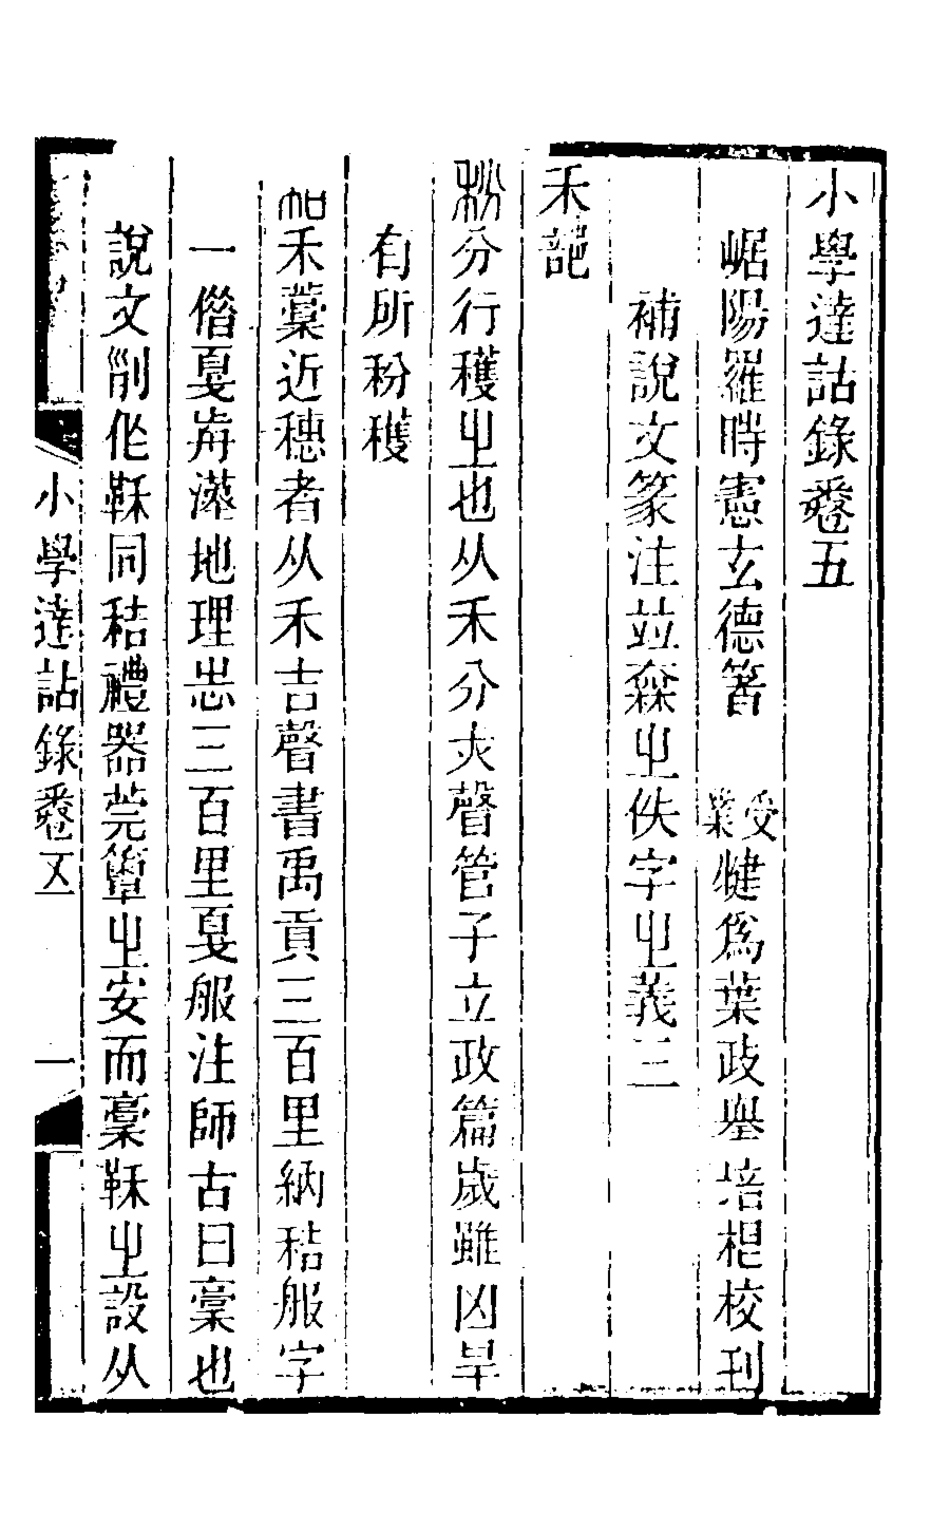 小學達詁錄卷五
崌陽羅時憲玄德箸 受業犍爲葉政舉培桤校刊
補說文篆注並森㞢佚字㞢義三
禾部
秎分行穫㞢也从禾分夾聲管子立政篇歲雖凶旱
有所秎穫
秸禾稾近穗者从禾吉聲書禹貢三百里納秸服字
一偺戛歬漢地理志三百里戛服注師古曰稾也
說文㓡作䅥同秸禮器莞簟㞢安而稾䅥㞢設从
小學達詁錄卷五 一